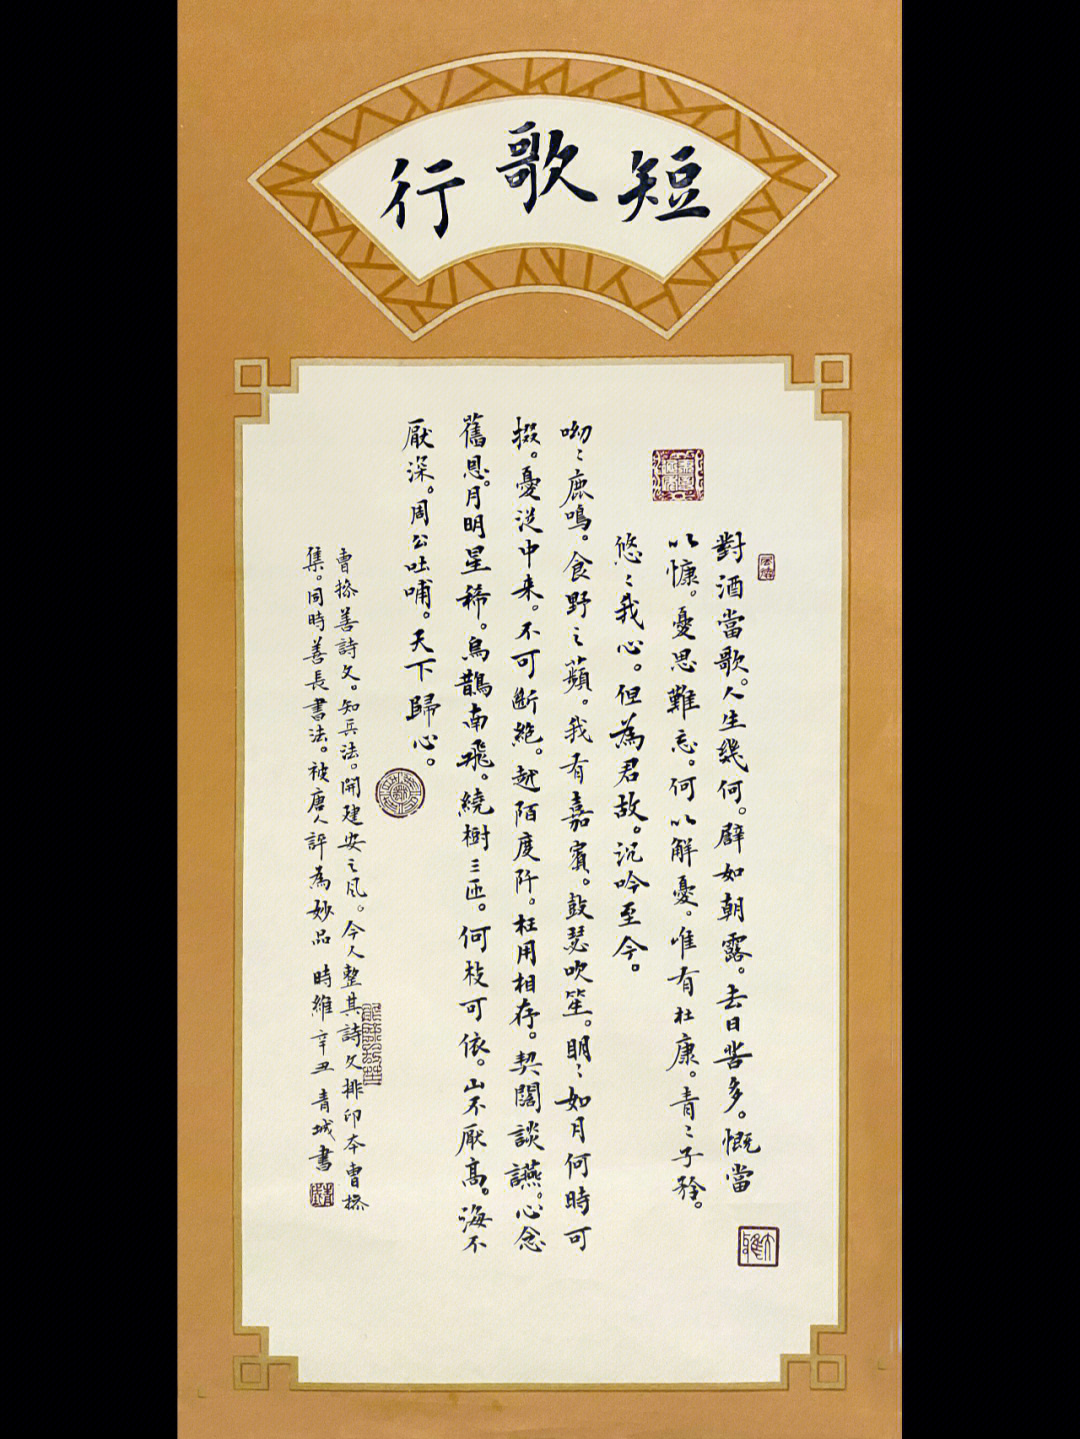 短歌行
對酒當歌。人生幾何。辟如朝露。去日苦多。慨當
以慷。憂思難忘。何以解憂。唯有杜康。青〻子衿。
悠〻我心。但為君故。沉吟至今。
呦〻鹿鳴。食野之蘋。我有嘉賓。鼓瑟吹笙。明〻如月何時可
掇。憂從中来。不可斷絶。越陌度阡。枉用相存。契闊談讌。心念
舊恩。月明星稀。烏鵲南飛。繞樹三匝。何枝可依。山不厭高。海不
厭深。周公吐哺。天下歸心。
曹操善詩文。知兵法。開建安之風。今人整其詩文排印本曹操
集。同時善長書法。被唐人評為妙品 時維辛丑 青城書